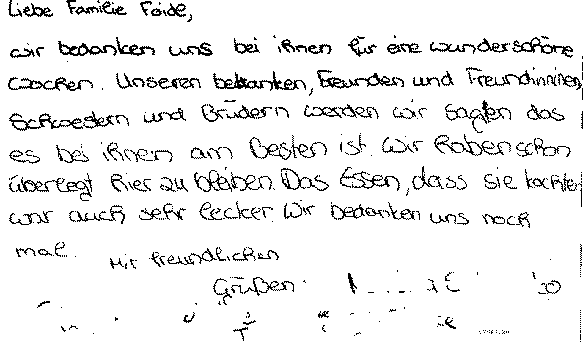 Liebe Familie Foide,
wir bedanken uns bei ihnen für eine wunderschöne
wochen. Unseren bekanken, Freunden und Freundinnen,
Schwestern und Brüdern werden wir sagen das
es bei ihnen am Besten ist. Wir haben schon
überlegt hier zu bleiben. Das Essen, dass sie kochte
war auch sehr lecker. Wir bedanken uns noch
mal.
Mit freundlichen
Grüßen